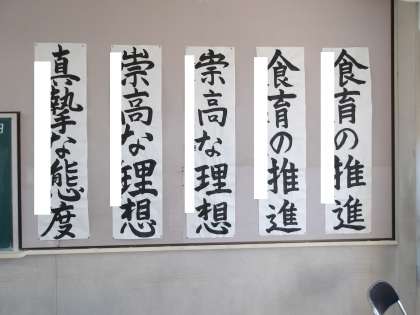 食育の推進
食育の推進
崇高な理想
崇高な理想
真摯な態度